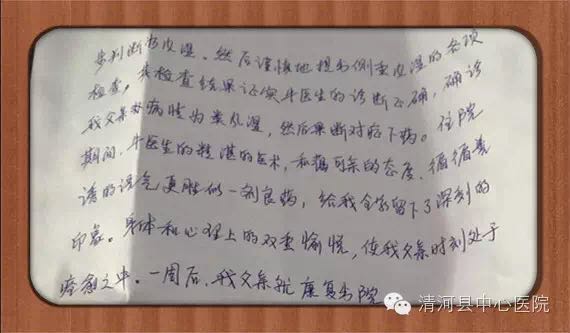 步判断为皮湿。然后谨慎地提出侧重皮湿的各项
检查，其检查结果证实牛医生的诊断正确，确诊
我父亲的病症为类风湿，然后果断对症下药。住院
期间，牛医生的精湛的医术，和蔼可亲的态度、循循善
诱的语气更胜似一剂良药，给我全家留下了深刻的
印象。身体和心理上的双重愉悦，使我父亲时刻处于
痊愈之中。一周后，我父亲就康复出院
清河县中心医院